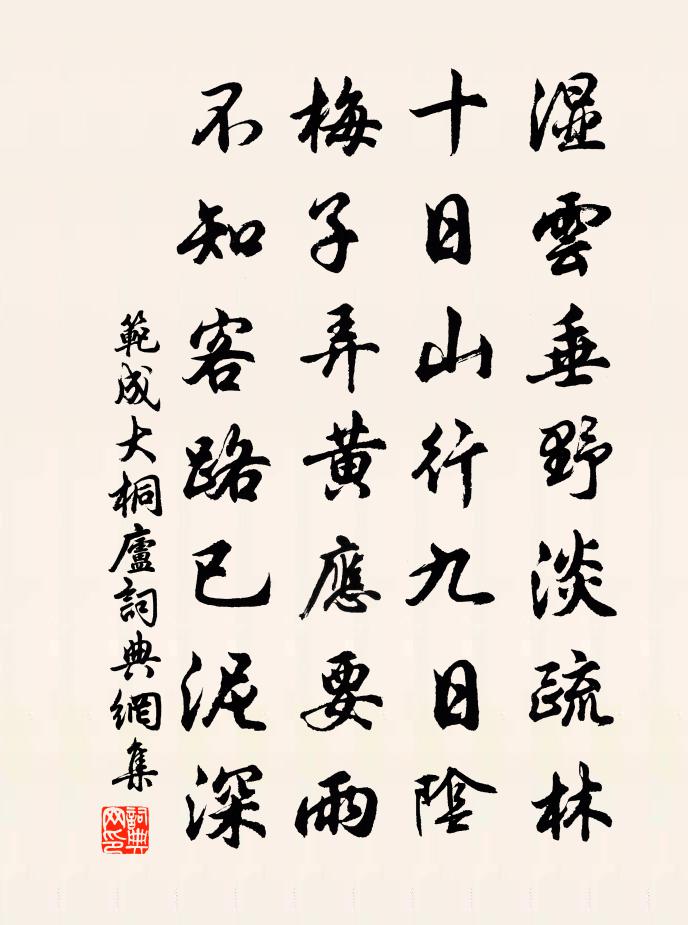 溼雲垂野淡疏林
十日山行九日陰
梅子弄黃應要雨
不知客路已泥深
範成大桐廬詞典網集
詞典網印